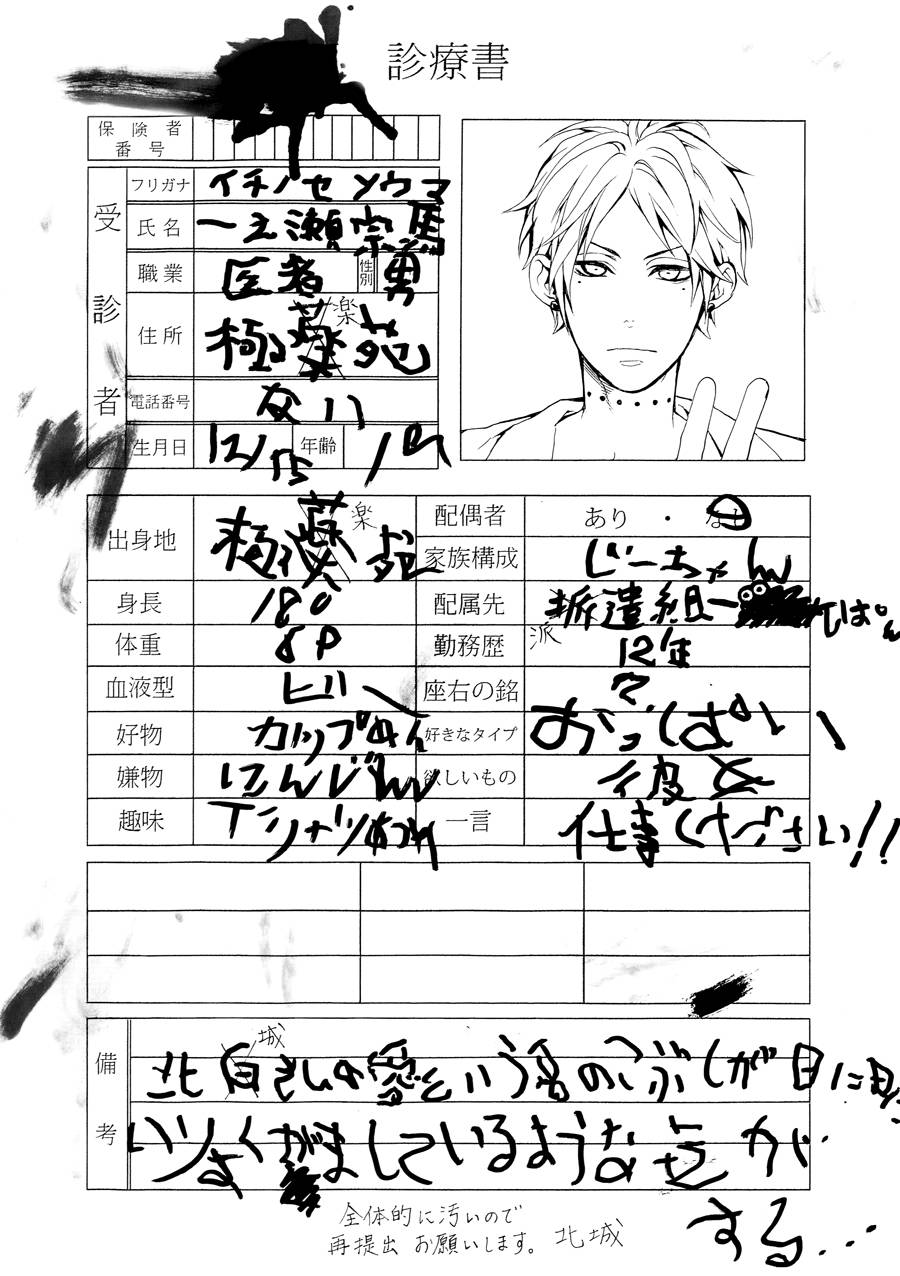 診療書
保険者番号
受診者
フリガナ イチノセ ソウマ
氏名 一之瀬宗馬
職業 医者 性別 男
住所 極薬苑 楽
電話番号 ない
生月日 12/15 年齢 19
出身地 極薬苑 楽
配偶者 あり・なし
家族構成 じーちゃん
身長 180
配属先 派遣組一 てっぱん
体重 69
派
勤務歴 12年
血液型 ビー
座右の銘 ?
好物 カップめん
好きなタイプ おっぱい
嫌物 にんじん
欲しいもの 彼女
趣味 Tシャツあつめ
一言 仕事ください!!
備考
城
北白さんの愛という名のこぶしが日に日に
いりょくがましているような気が
する...
全体的に汚いので
再提出お願いします。北城